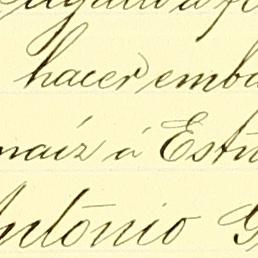 hacer emba
maíz á Estu
Antonio G